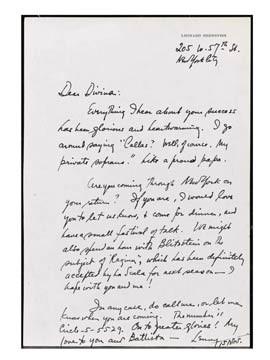 LEONARD BERNSTEIN
205 W. 57th St.
New York City
Dear Divina:
Everything I hear about your success
has been glorious and heartwarming. I go
around saying "Callas? Well, of course. My
private soprano." Like a proud papa.
Are you coming through New York on
your return? If you are, I would love
you to let us know, & come for dinner, and
have a small festival of talk. We might
also spend an hour with Blitzstein on the
subject of "Regina", which has been definitely
accepted by La Scala for next season — I
hope with you and me!
In any case, do call me, or let me
know when you are coming. The number is
Circle-5-5529. On to greater glories! My
love to you and Battista —
Lenny
15 Nov.